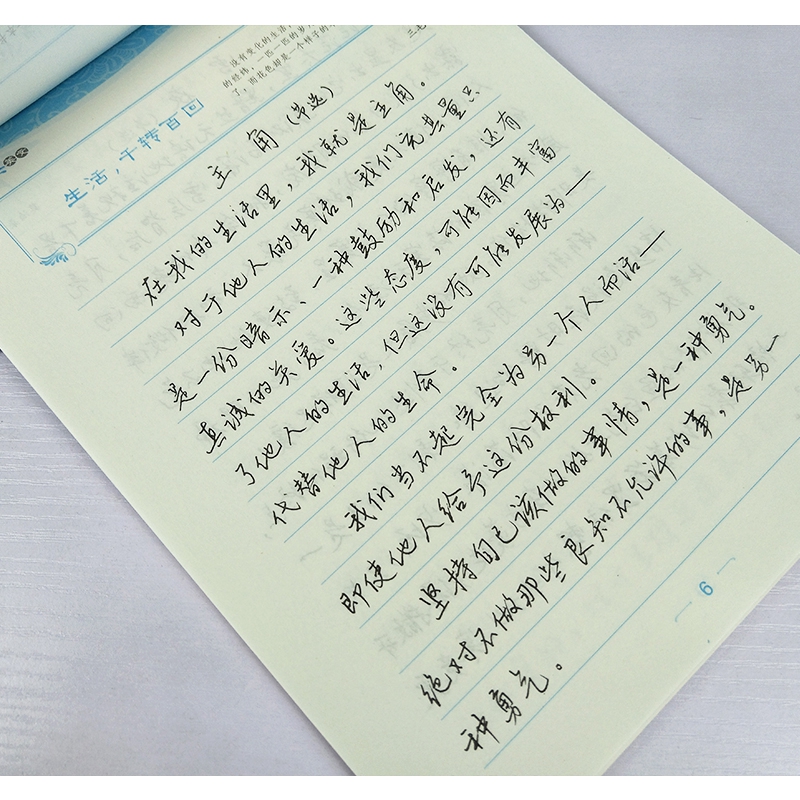 没有变化的生活
的经纬，一匹一匹的岁
了，而花色却是一个样子的
三毛
生活，千转百回
主角（节选）
在我的生活里，我就是主角。
对于他人的生活，我们充其量只
是一份暗示、一种鼓励和启发，还有
真诚的关爱。这些态度，可能因而丰富
了他人的生活，但这没有可能发展为——
代替他人的生命。
我们当不起完全为另一个人而活——
即使他人给予这份权利。
坚持自己该做的事情，是一种勇气。
绝对不做那些良知不允许的事，是另一
种勇气。
9